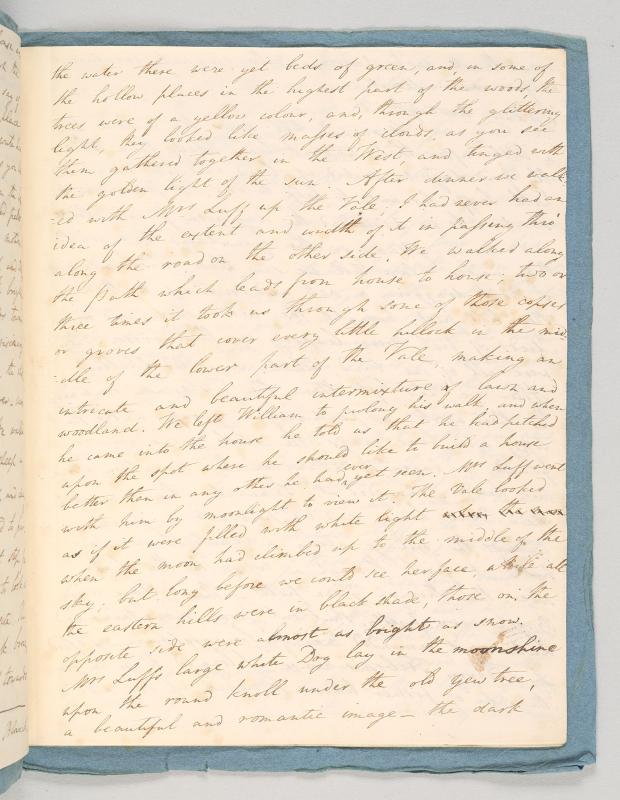 the water there were yet beds of green, and, in some of
the hollow places in the highest part of the woods, the
trees were of a yellow colour, and, through the glittering
light, they looked like masses of clouds as you see
them gathered together in the West, and tinged with
the golden light of the sun. After dinner we walk
-ed with Mrs Luff up the Vale; I had never had an
idea of the extent and width of it in passing thro'
along the road on the other side. We walked along
the path which leads from house to house; two or
three times it took us through some of those copses
or groves that cover every little hillock in the mid-
-dle of the lower part of the Vale, making an
intricate and beautiful intermixture of lawn and
woodland. We left William to prolong his walk, and when
he came into the house he told us that he had pitched
upon the spot where he should like to build a house
better than in any other he had ever yet seen. Mrs Luff went
with him by moonlight to view it. The Vale looked
as if it were filled with white light
when the moon had climbed up to the middle of the
sky; but long before we could see her face while all
the eastern hills were in black shade, those on the
opposite side were almost as bright as snow.
Mrs Luff's large white Dog lay in the moonshine
upon the round knoll under the old yew tree,
a beautiful and romantic image — the dark